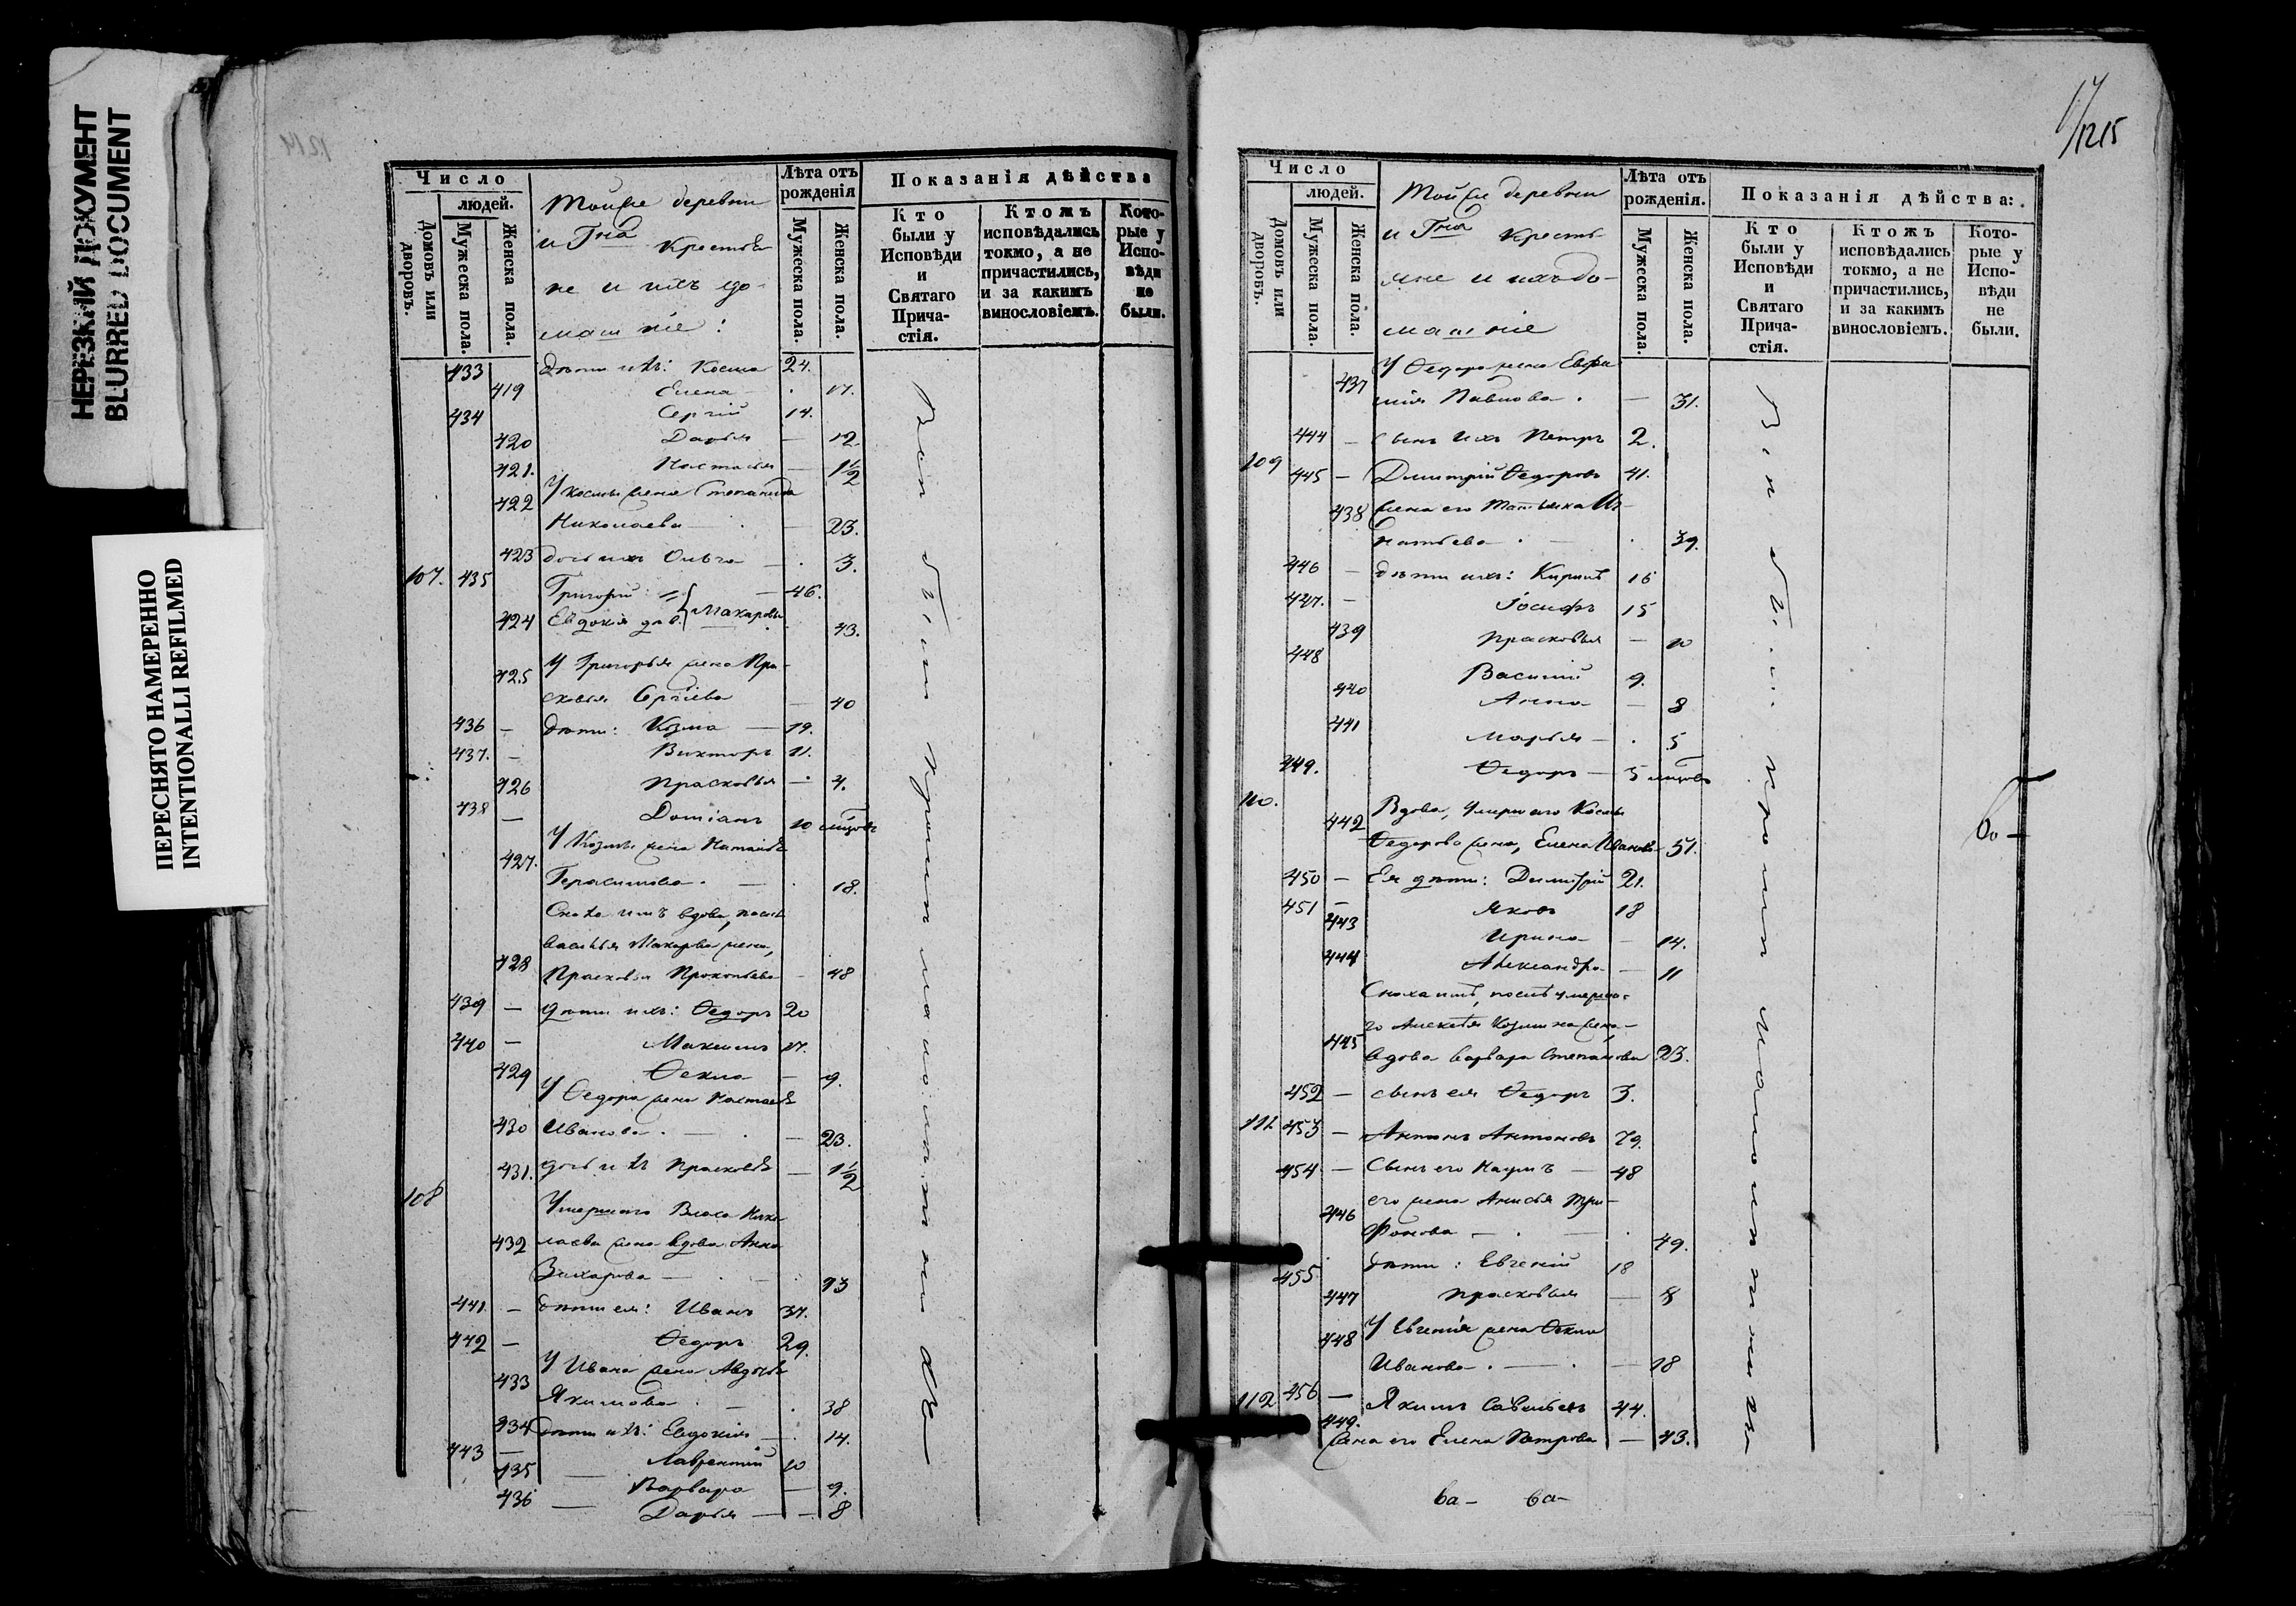 НЕРЕЗКИЙ ДОКУМЕНТ
BLURRED DOCUMENT
ПЕРЕСНЯТО НАМЕРЕННО
INTENTIONALLI REFILMED
Число
людей.
Домовъ или дворовъ.
Мужеска пола.
Женска пола.
Тойже деревни
и Гна Крестья
не и ихъ до-
машніе:
Лѣта отъ рождения
Мужеска пола.
Женска пола.
Показанія дѣйства
Кто были у Исповѣди и Святаго Прича-стія.
Ктожъ исповѣдались токмо, а не причастились, и за какимъ винословіемъ.
Кото-рые у Испо-вѣди не были.
433 дѣти ихъ: Косма 24.
419 Елена 17.
434 Сергій 14.
420 Дарья — 12.
421. Настасья — 1½
422 У Космы жена Степанида
Николаева — 23.
423 дочь ихъ Ольга — 3.
107. 435 Григорій — 46.
424 Евдокія дѣв. Макаровы 43.
425 У Григорья жена Пра-
сковья Сергіева — 40
436 — дѣти: Козма — 19.
437. — Викторъ 11.
426 Прасковья — 4.
438 — Доміанъ 10 мцовъ
427. У Козмы жена
Герасимова. — 18.
Сноха ихъ вдова, послѣ
Василья Макарова жена,
428 Прасковья Прокопьева — 48
439 — дѣти ихъ: Ѳедоръ 20
440 — Максимъ 17.
429 Ѳекла — 9.
У Ѳедора жена Настасья
430 Иванова. — 23.
431. дочь ихъ Прасковья — 1½
108 Умершаго Власа Нико-
432 лаева жена вдова Анна
Захарова — 73
441. — дѣти ея: Иванъ 37.
442 — Ѳедоръ 29.
433 У Ивана жена Авдотья
Якимова — 38
434 дѣти ихъ: Евдокія — 14.
443 — Лаврентій 10
435 — Варвара — 9.
436 — Дарья — 8
17/1215
Число
людей.
Домовъ или дворовъ.
Мужеска пола.
Женска пола.
Тойже деревни
и Гна Кресть-
яне и ихъ до-
машніе
Лѣта отъ рождения.
Мужеска пола.
Женска пола.
Показанія дѣйства:.
Кто были у Исповѣди и Святаго Прича-стія.
Ктожъ исповѣдались токмо, а не причастились, и за какимъ винословіемъ.
Кото-рые у Испо-вѣди не были.
437 У Ѳедора жена Евфи
мія Павлова. — 31.
444 — сынъ ихъ Петръ 2.
109 445 — Димитрій Ѳедоровъ 41.
438 жена его Татьяна Иг-
натьева 39.
446 — дѣти ихъ: Кирилъ 16
447. — Іосифъ 15
439 Прасковья — 10
448 Василій 9.
440 Анна — 8
441 Марья — 5
449. Ѳедоръ — 5 мцовъ
110. 442 Вдова, умершаго Космы
Ѳедорова жена, Елена Иванова 51.
450 — Ея дѣти: Димитрій 21.
451 — Яковъ 18
443 Ирина — 14.
444 Александра — 11
Сноха ихъ, послѣ умерша-
445 го Алексѣя Козмина жена
вдова Варвара Степанова 23.
452 — сынъ ея Ѳедоръ 3.
111 453 — Антонъ Антоновъ 79.
454 — Сынъ его Наумъ — 48
446 его жена Анисья Три-
фонова — 49.
455 дѣти: Евгеній 18
447 Прасковья — 8
448 У Евгенія жена Ѳекла
Иванова. — 18
112 456 — Якимъ Савельевъ 44.
449. жена его Елена Петрова — 43.